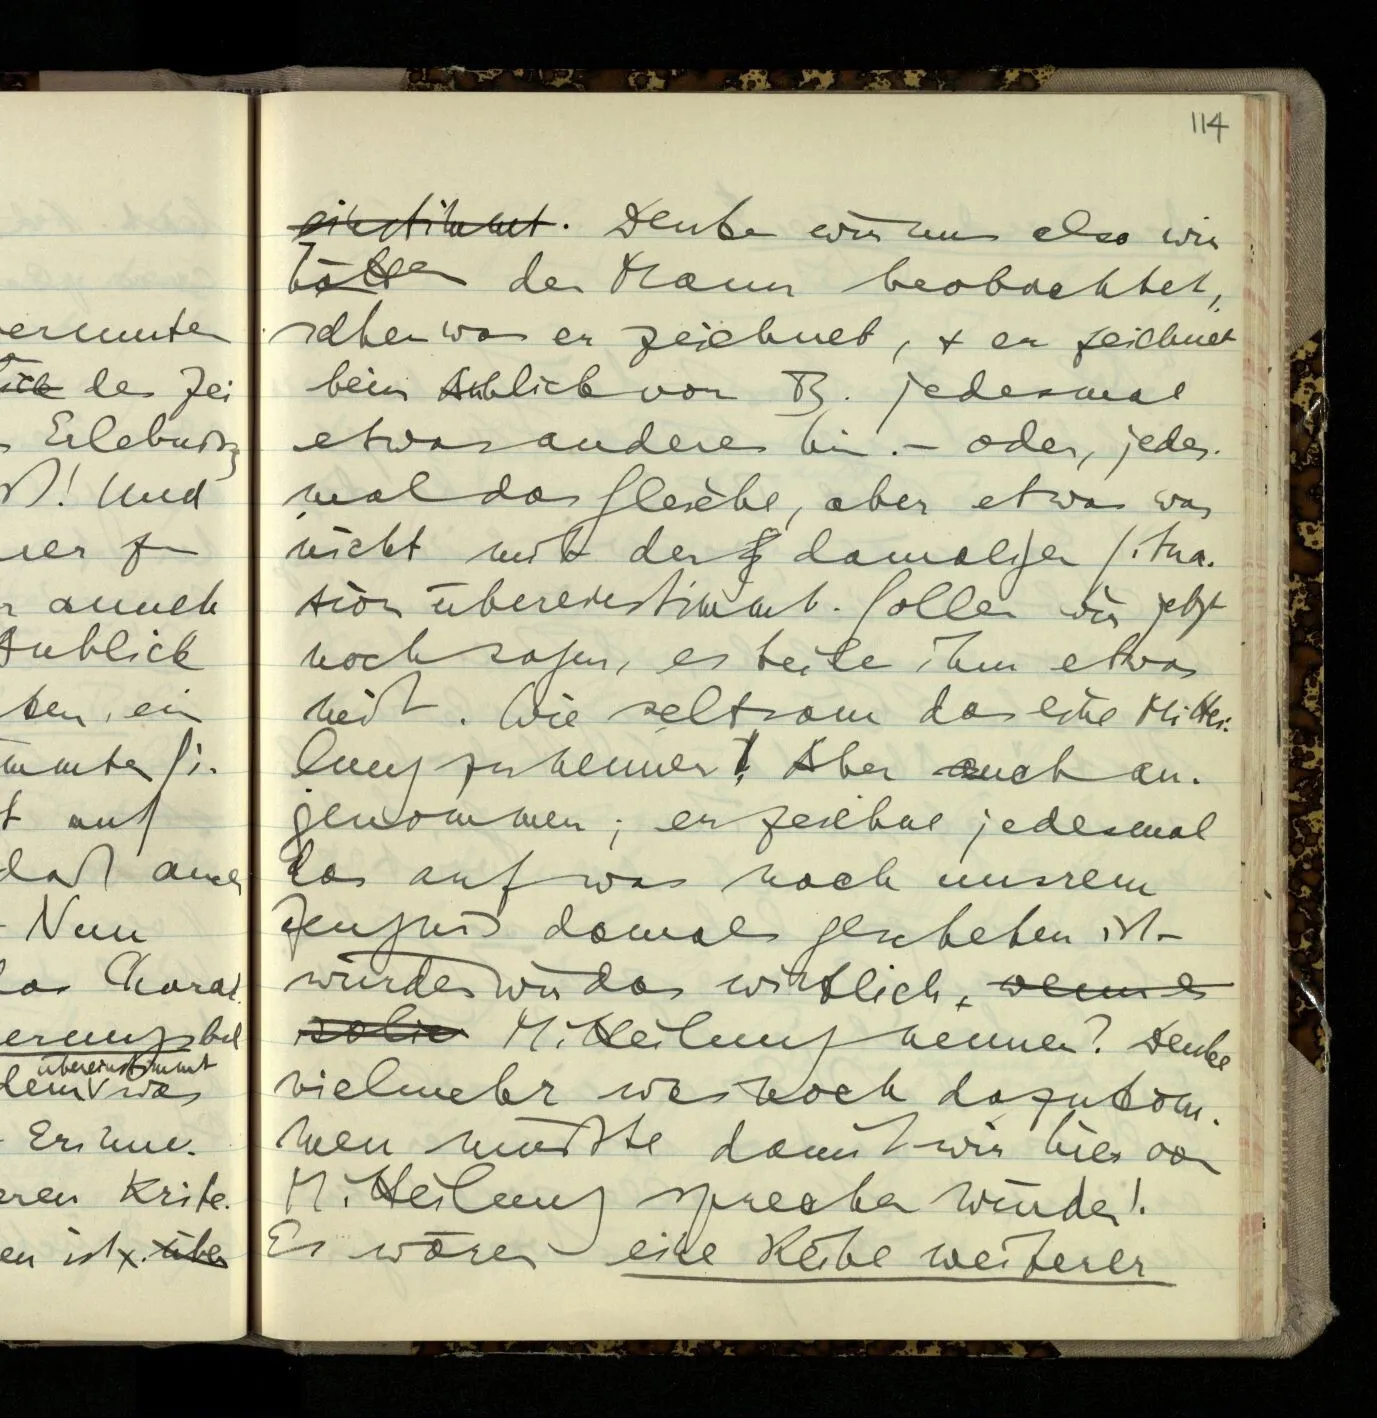 114
ermuten
der Zei
Erlebnis
ist! Und
er zu
r anneh
Anblick
ten, ein
immter Si-
t auf
daß auch
– Nun
das Charak
erungsbil
übereinstimmt
dem was
Erinne-
eren Krite-
en ist x. über
einstimmt. Denke wir uns also wir
hätten den Mann beobachtet,
sähen was er zeichnet, + er zeichnet
beim Anblick von B. jedesmal
etwas anderes hin. – oder, jedes-
mal das Gleiche, aber etwas was
nicht mit der damaligen Situa-
tion übereinstimmt. Sollen wir jetzt
noch sagen, es teile ihm etwas
mit. Wie seltsam das eine Mittei-
lung zu nennen! Aber auch an-
genommen; er zeichne jedesmal
das auf was nach unsrem
Zeugnis damals geschehen ist –
würden wir das wirklich, wenn es
Mitteilung nennen? Denke
vielmehr was noch dazukom-
men müßte damit wir hier von
Mitteilung sprechen würden!
Es wären eine Reihe weiterer